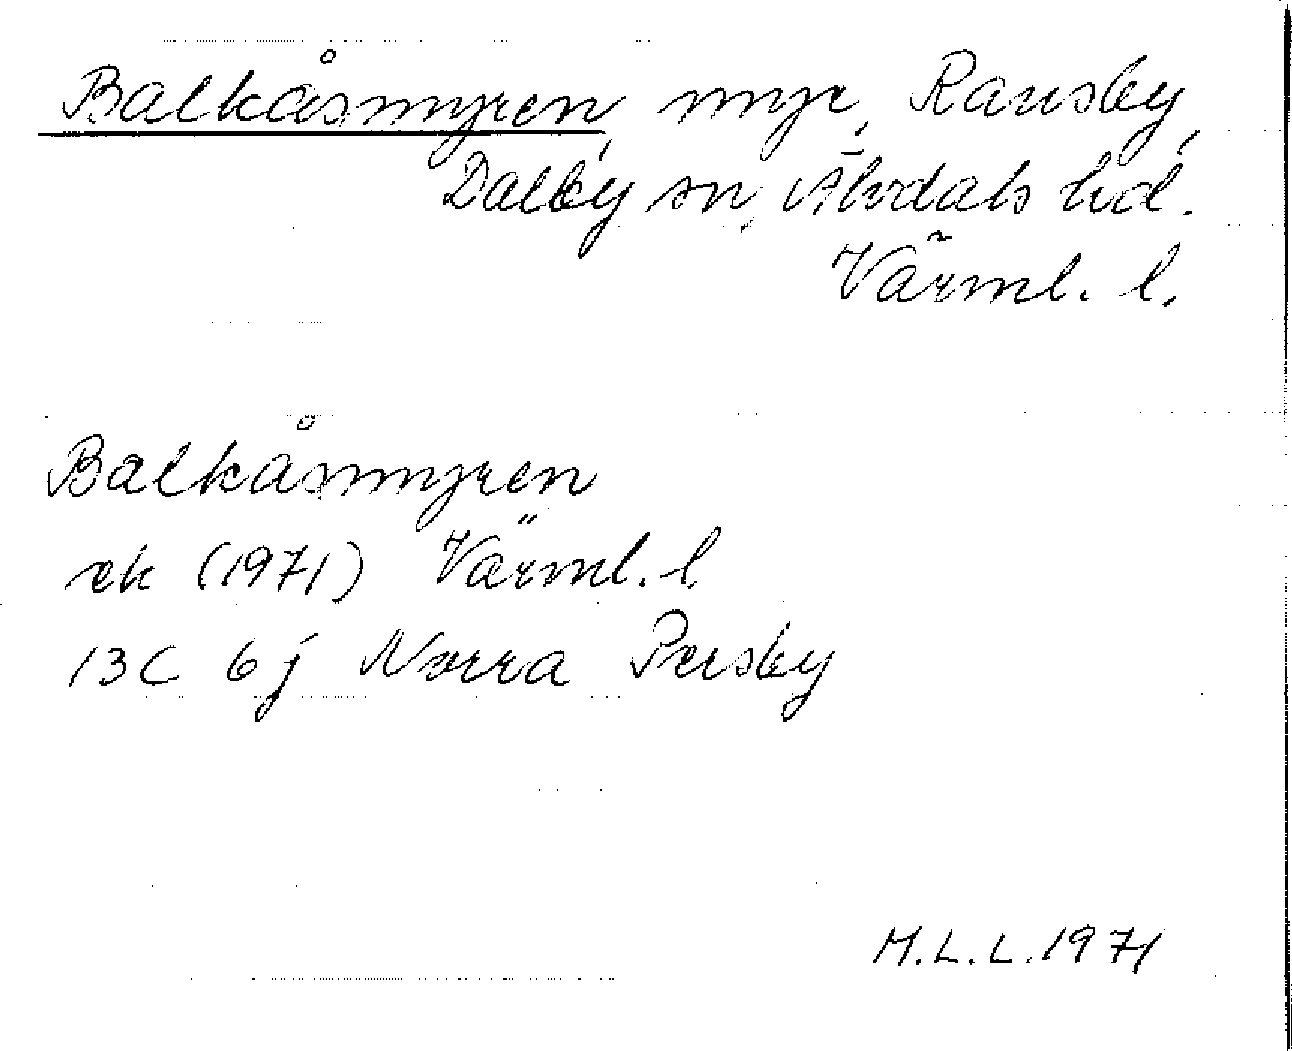 Balkåsmyren, myr, Ransby,
Dalby sn, Älvdals hd.
Värml. l.
Balkåsmyren
ek (1971) Värml. l.
13C 6j Norra Persby
M.L.L. 1971